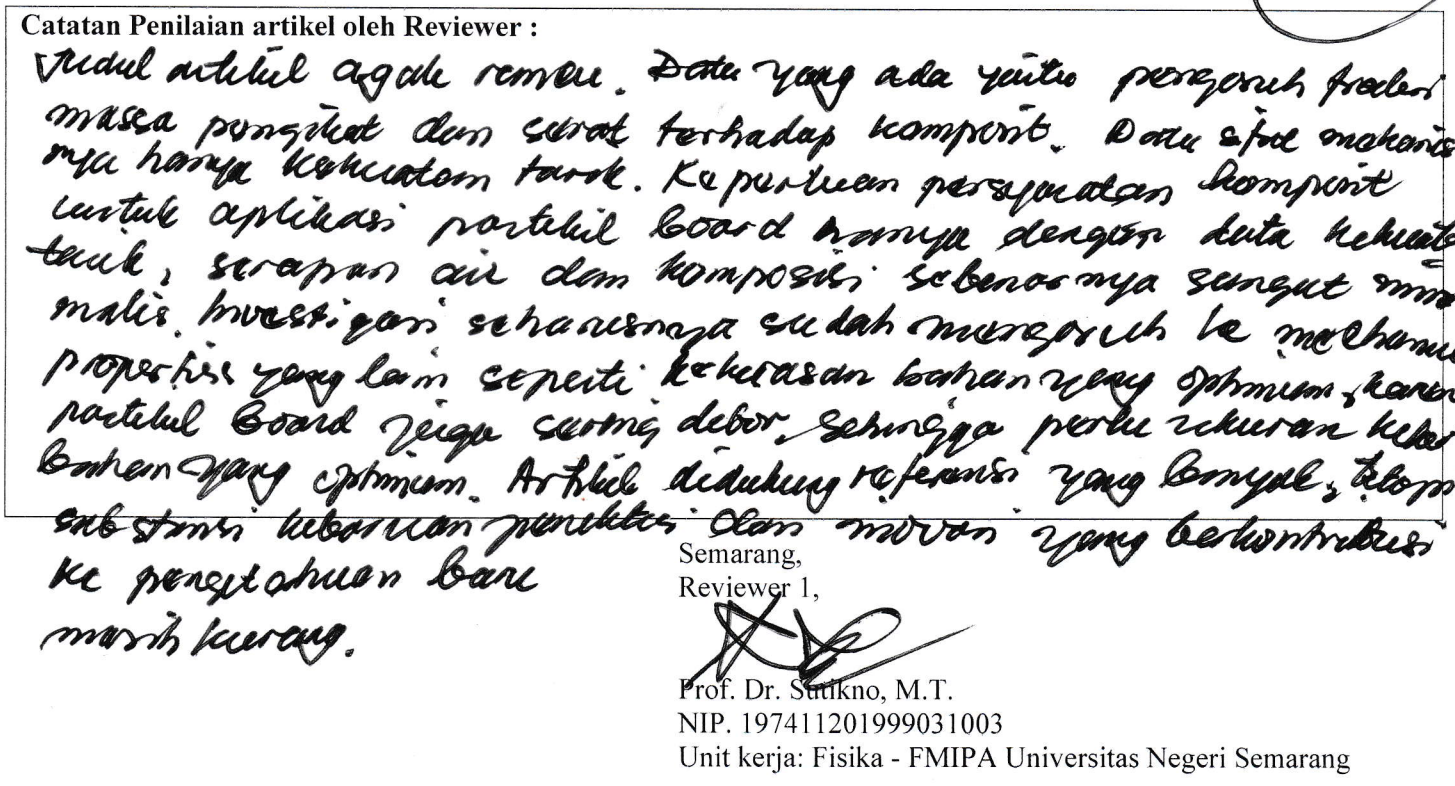 Catatan Penilaian artikel oleh Reviewer :
Judul artikel agak rancu. Data yang ada yaitu pengaruh fraksi
massa pengikat dan serat terhadap komposit. Data sifat mekanis
nya hanya kekuatan tarik. Keperluan persyaratan komposit
untuk aplikasi partikel board hanya dengan data kekuat
tarik, serapan air dan komposisi sebenarnya sangat mini
malis. Investigasi seharusnya sudah mengarah ke mechanic
properties yang lain seperti kekerasan bahan yang optimum, karen
partikel board juga sering dibor, sehingga perlu ukuran keker
bahan yang optimum. Artikel didukung referensi yang banyak, tetapi
substansi kebaruan penelitian dan inovasi yang berkontribusi
ke pengetahuan baru
masih kurang.
Semarang,
Reviewer 1,
Prof. Dr. Sutikno, M.T.
NIP. 197411201999031003
Unit kerja: Fisika - FMIPA Universitas Negeri Semarang